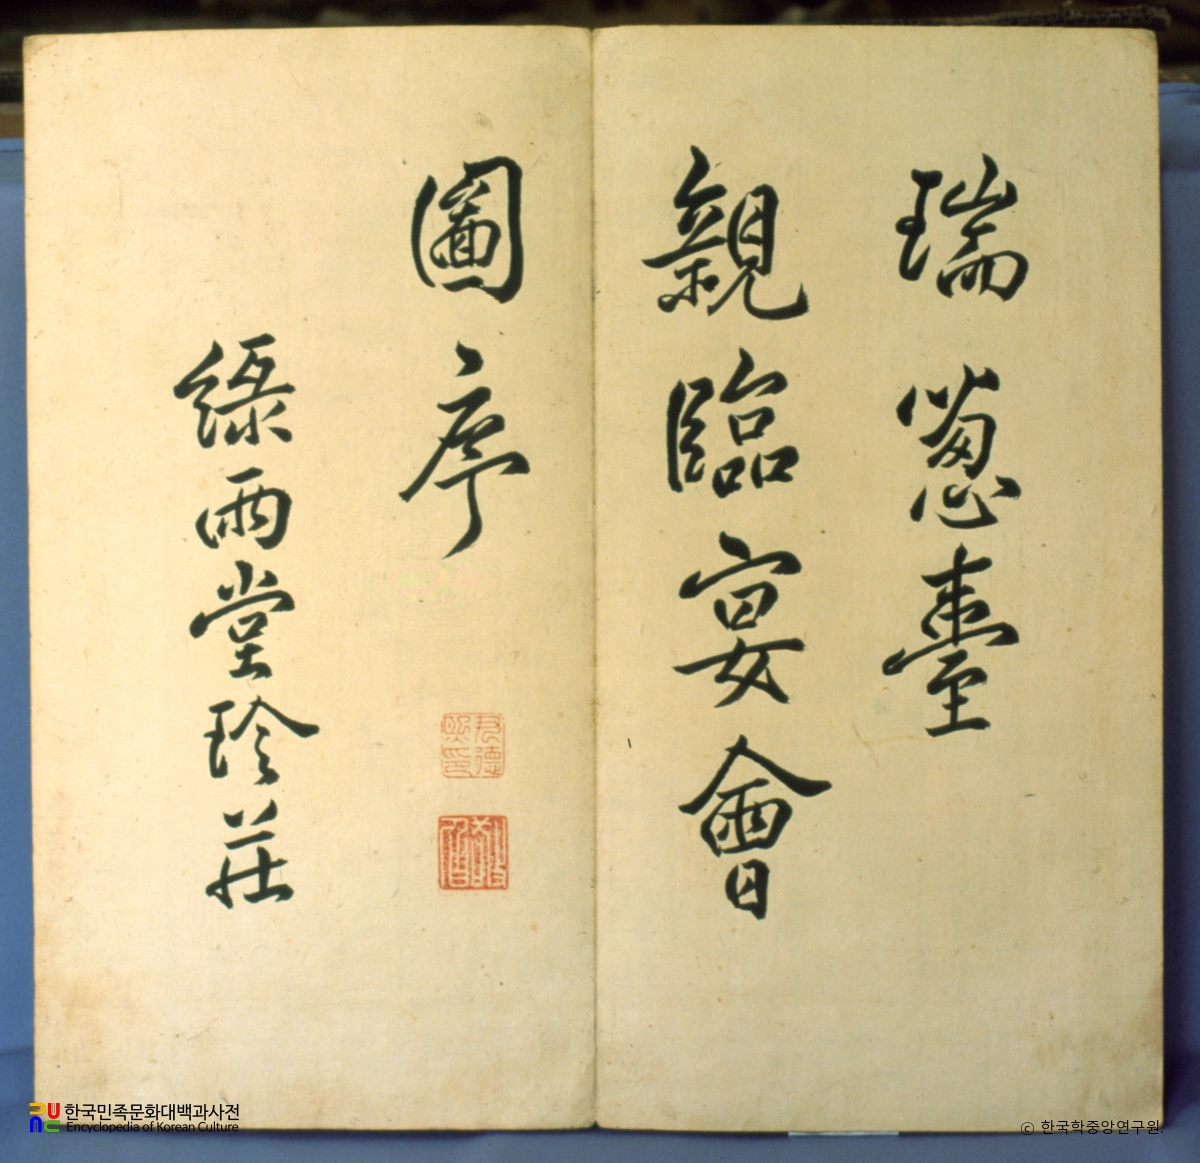 瑞葱臺
親臨宴會
圖序
綠雨堂珍莊
尹德熙印
한국민족문화대백과사전
Encyclopedia of Korean Culture
ⓒ 한국학중앙연구원.